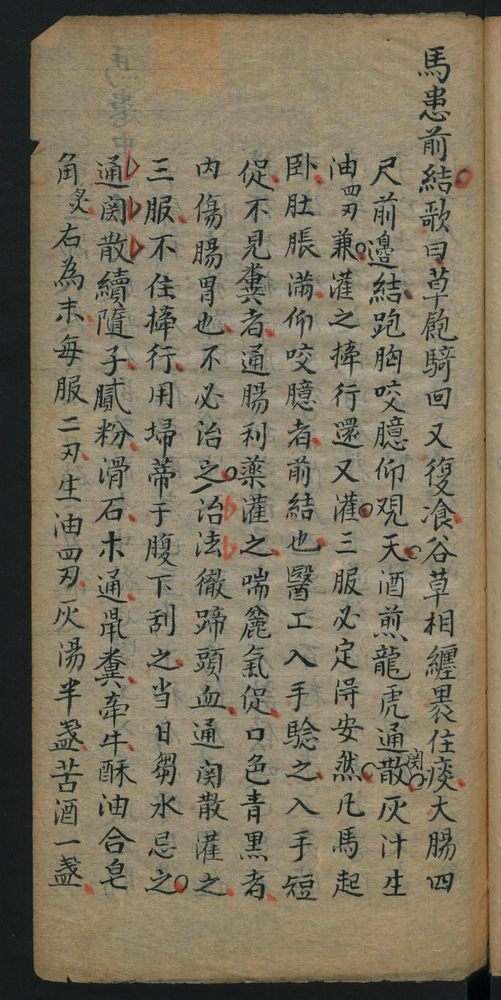 馬患前結歌曰草飽騎回又復飡谷草相纏裹住痰大腸四
尺前邉結跑胸咬臆仰观天酒煎龍虎通関散灰汁生
油四刃兼灌之捧行還又灌三服必定得安然凡馬起
卧肚脹滿仰咬臆者前結也醫工入手驗之入手短
促不見糞者通腸利藥灌之喘麄氣促口色青黒者
內傷腸胃也不必治之治法徹蹄頭血通関散灌之
三服不住捧行用埽蒂于腹下刮之当日芻水忌之
通関散續隨子膩粉滑石木通䑕糞牽牛酥油合皂
角炙右為末每服二刃生油四刃灰湯半盞苦酒一盞